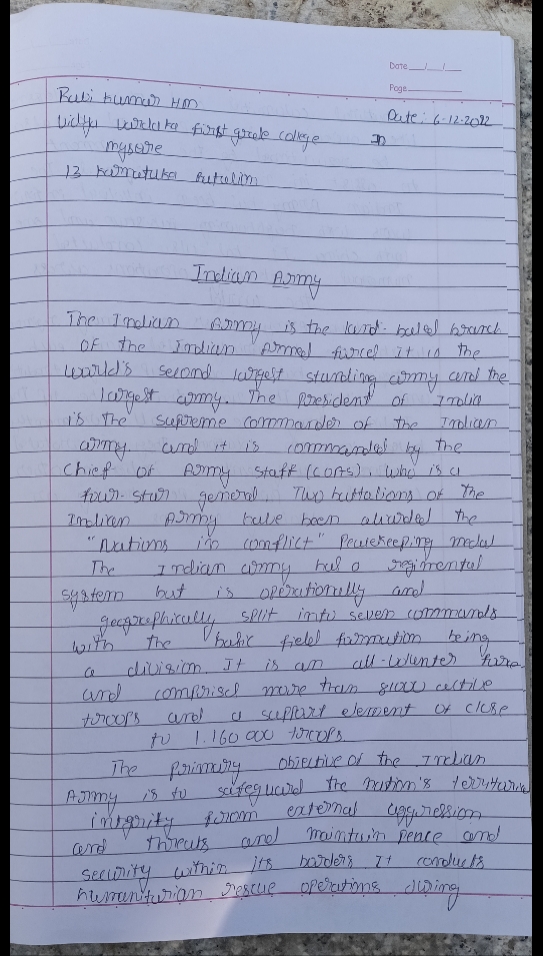 Date __/__/__
Page
Ravi Kumar HM
Date: 6-12-2022
Vidya Vardaka first grade college In
mysore
13 Karnataka Battalion
Indian Army
The Indian Army is the land-based branch
OF the Indian Armed forces It is the
world's second largest standing army and the
largest army. The President of India
is the supreme commander of the Indian
army. and it is commanded by the
Chief of Army staff (COAS). who is a
four-star general. Two battalions of the
Indian Army have been awarded the
"Nations in conflict" Peacekeeping medal
The Indian army has a regimental
system but is operationally and
geographically split into seven commands
with the basic field formation being
a division It is an all-volunter force
and comprises more than active
troops and a support element of close
to 1.160 000 troops
The primary objective of the Indian
Army is to safeguard the nation's territorial
integrity from external aggression
and threats and maintain peace and
security within its borders It conducts
humanitarian rescue operations during